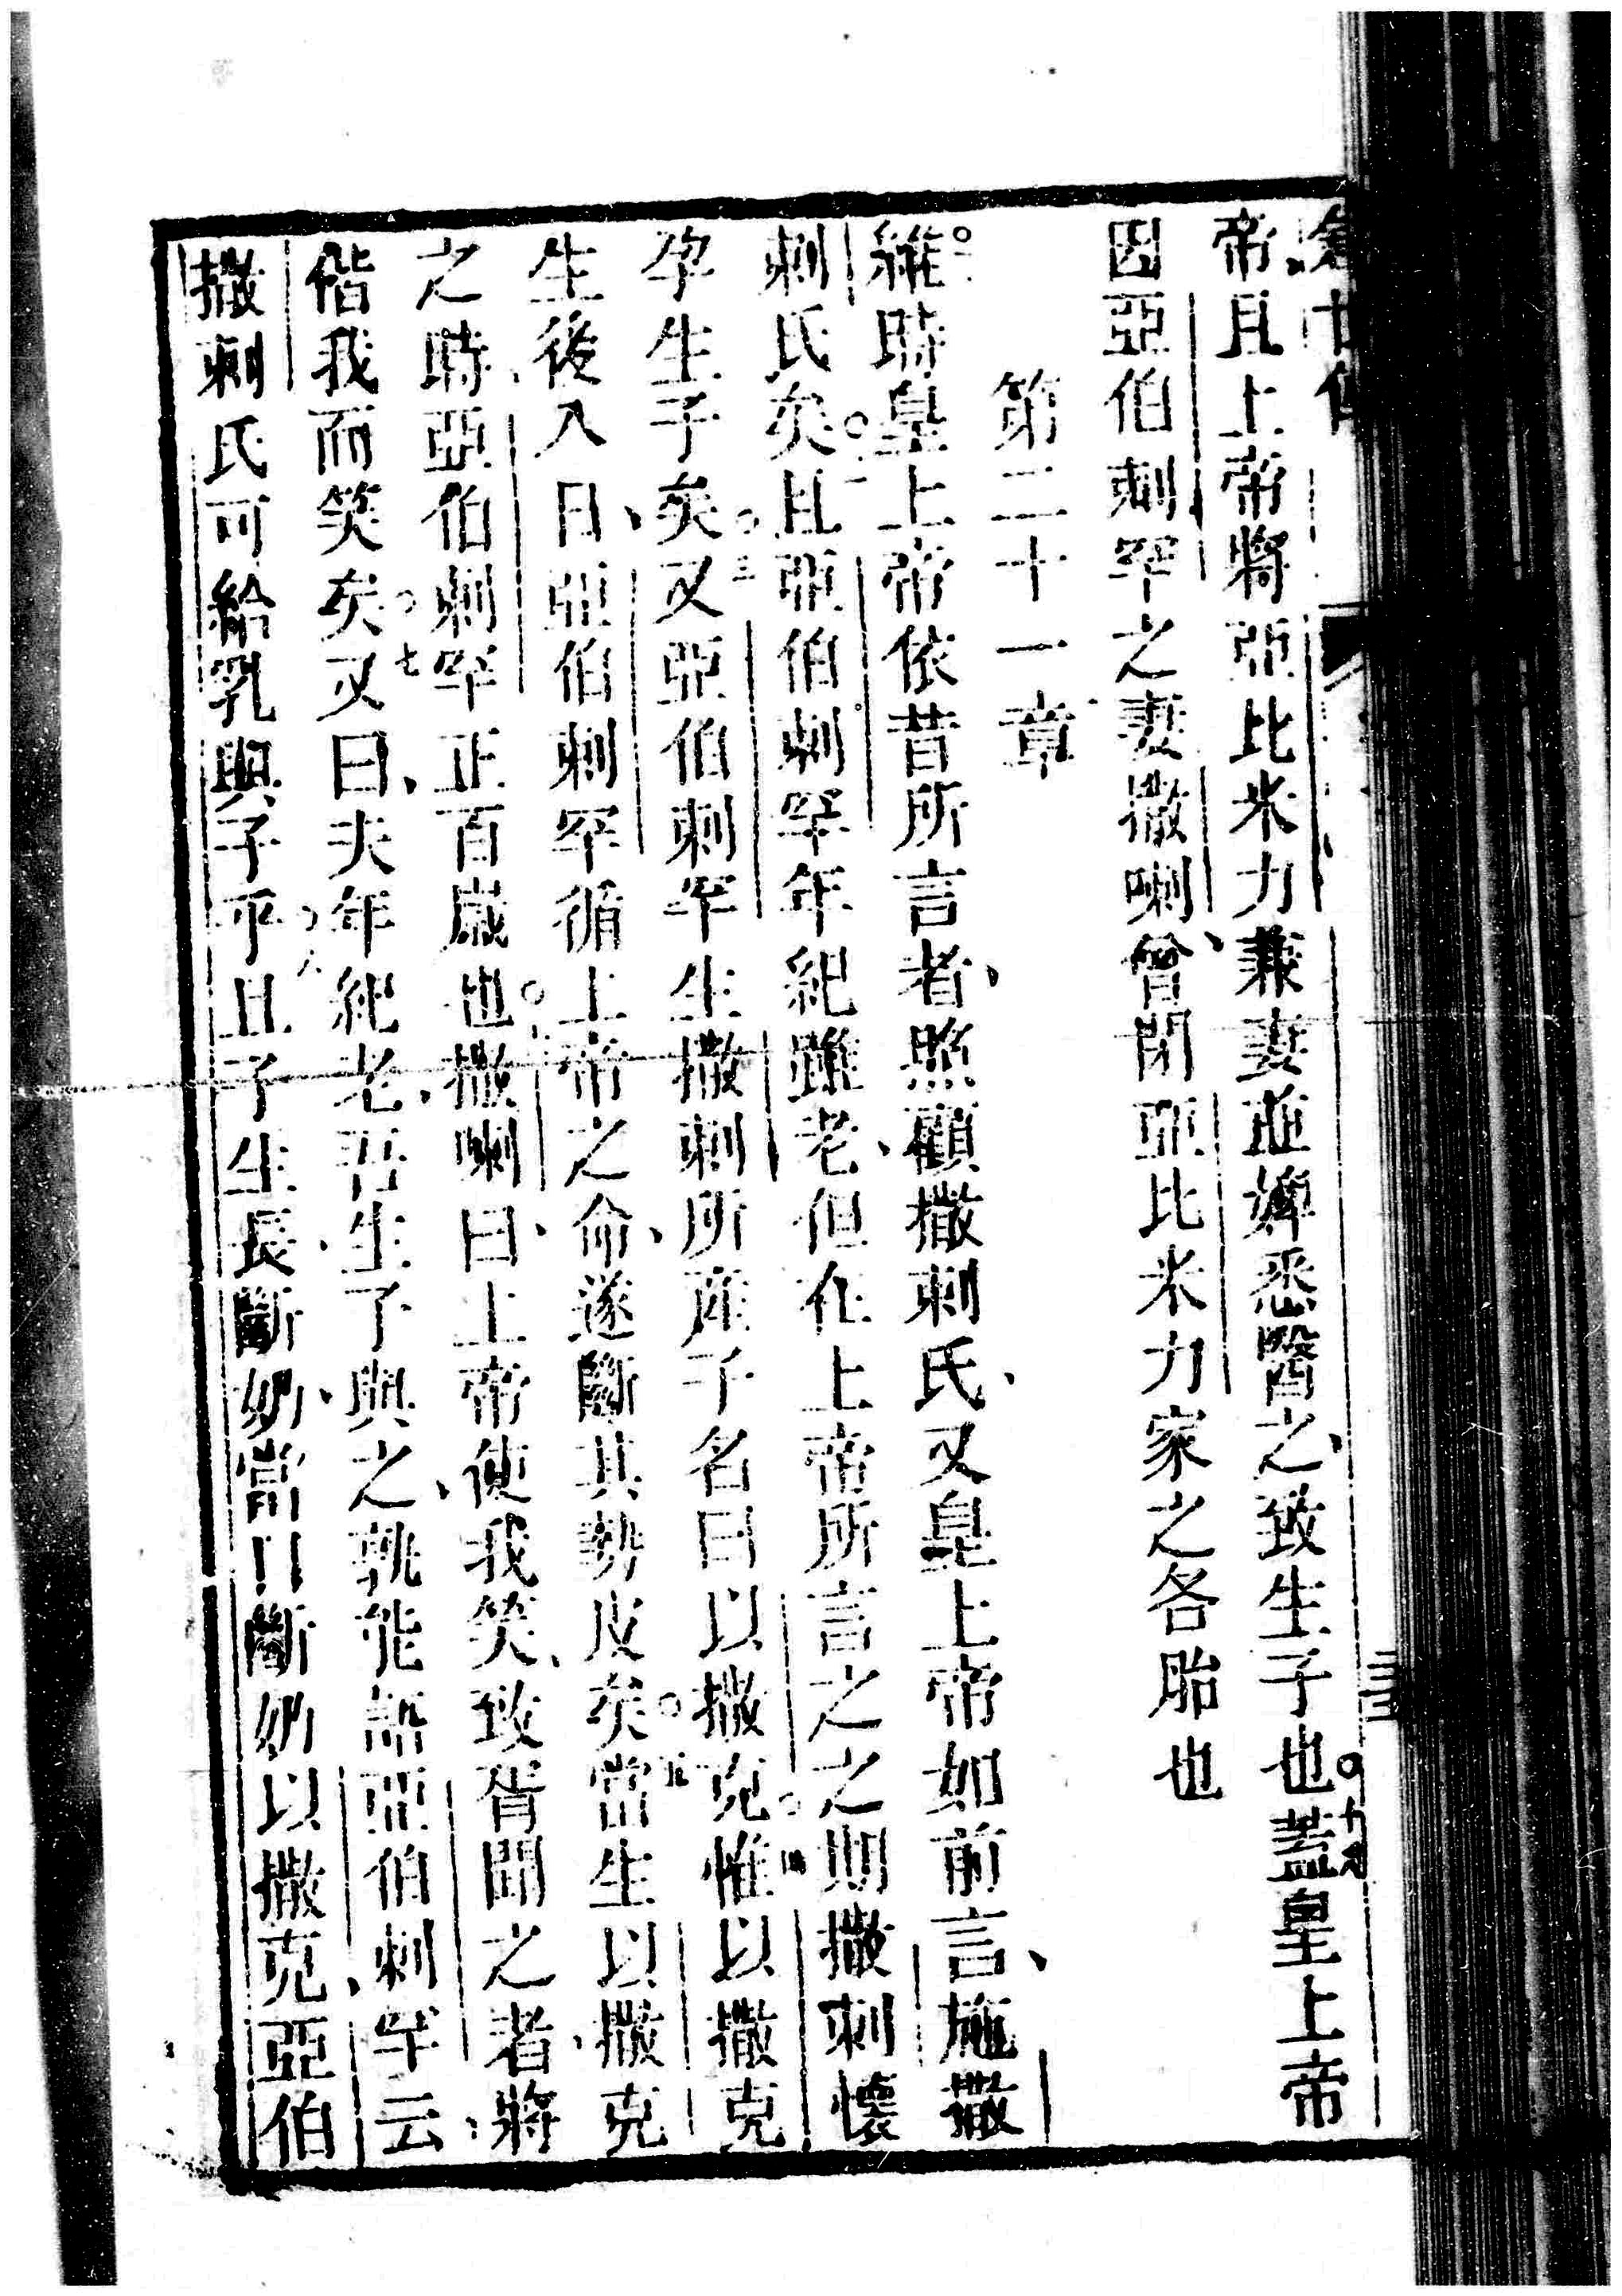 帝、且上帝將亞比米力兼妻並婢悉醫之、致生子也○十八蓋皇上帝
因亞伯剌罕之妻撒喇、曾閉亞比米力家之各胎也
第二十一章
維時皇上帝依昔所言者、照顧撒剌氏、又皇上帝如前言、施撒
剌氏矣○二且亞伯剌罕年紀雖老、但在上帝所言之之期撒剌懷
孕生子矣○三又亞伯剌罕生撒剌所產子名曰以撒克○四惟以撒克
生後八日、亞伯剌罕循上帝之命、遂斷其勢皮矣○五當生以撒克
之時、亞伯剌罕正百歲也○六撒喇曰、上帝使我笑、致胥聞之者、將
偕我而笑矣○七又曰、夫年紀老、吾生子與之、孰能語亞伯剌罕云、
撒剌氏可給乳與子乎○八且子生長、斷奶、當日斷奶以撒克、亞伯
三三